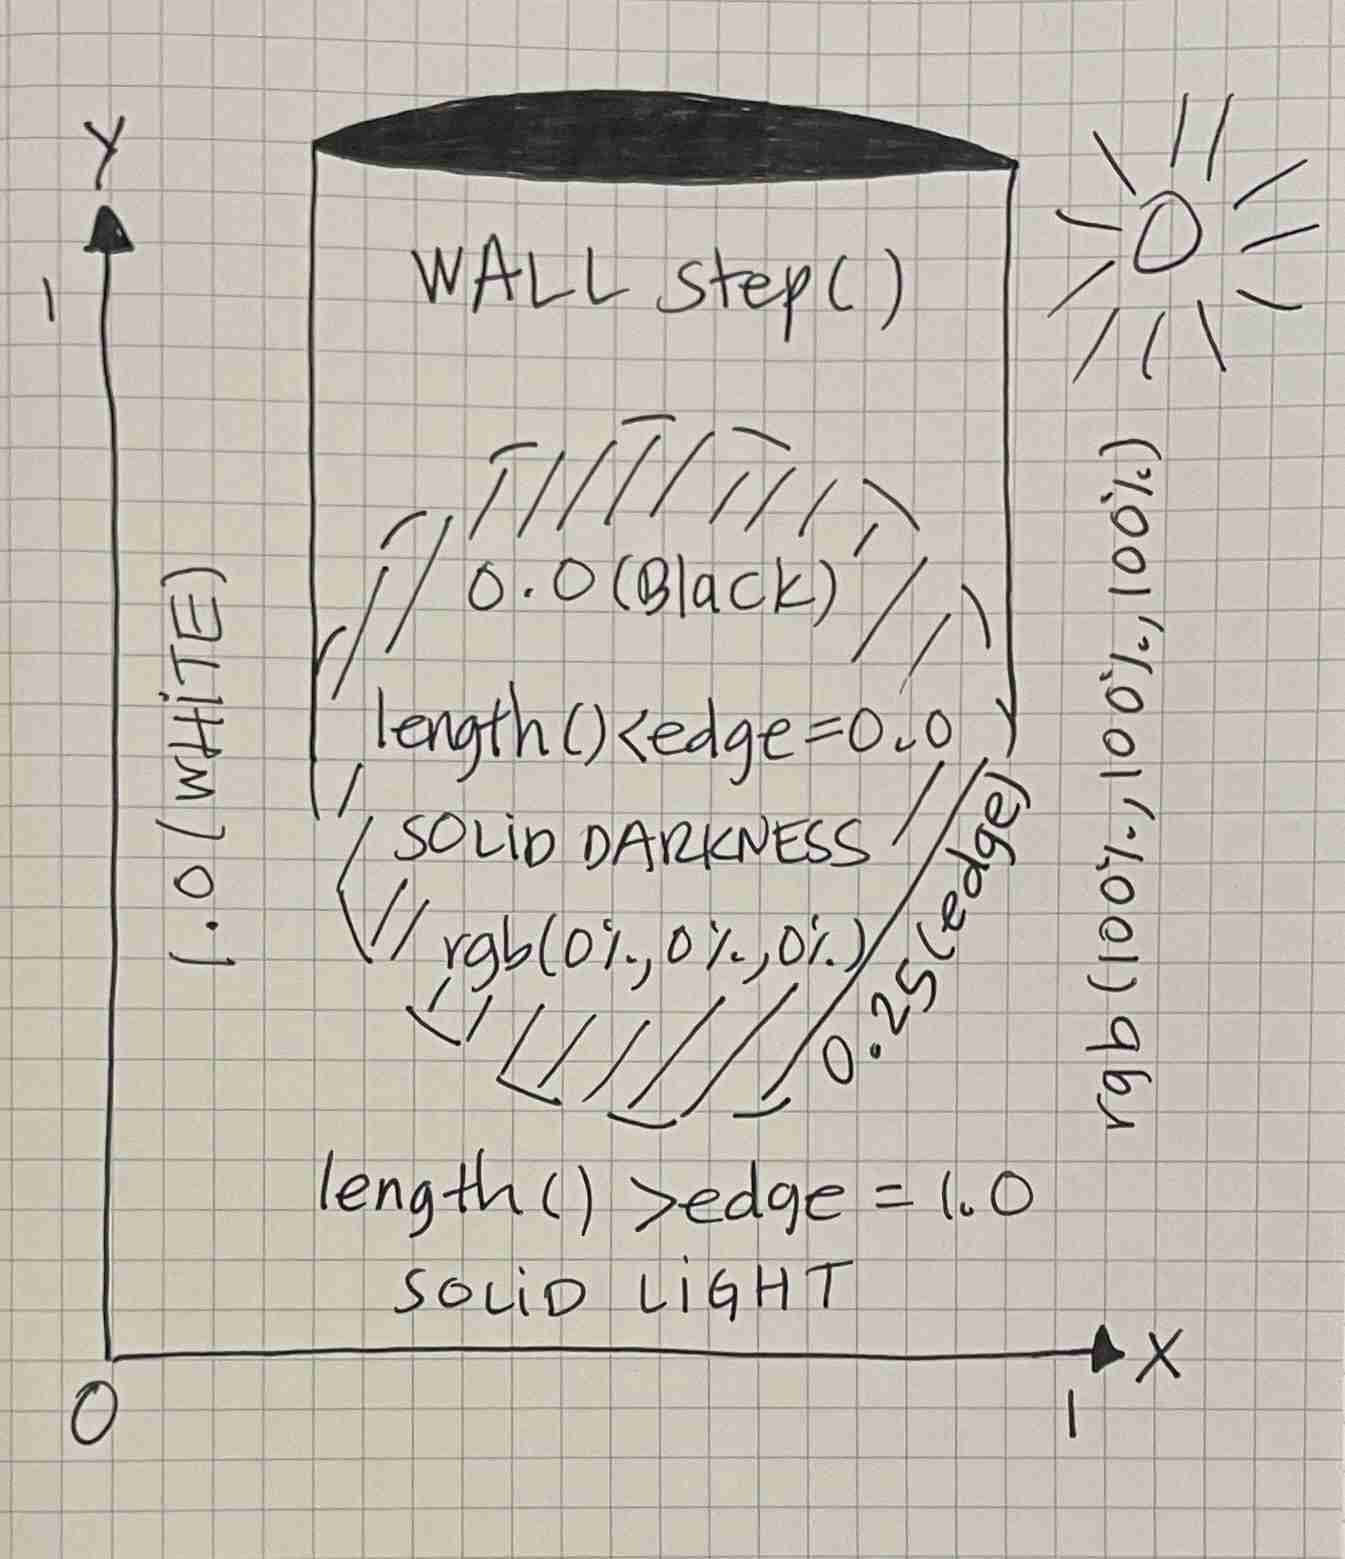 Y
1
WALL step()
1.0 (WHiTE)
0.0 (Black)
length()<edge=0.0
SOLiD DARKNESS
rgb(0%,0%,0%)
0.25(edge)
rgb(100%,100%,100%)
length() >edge = 1.0
SOLiD LiGHT
X
0
1